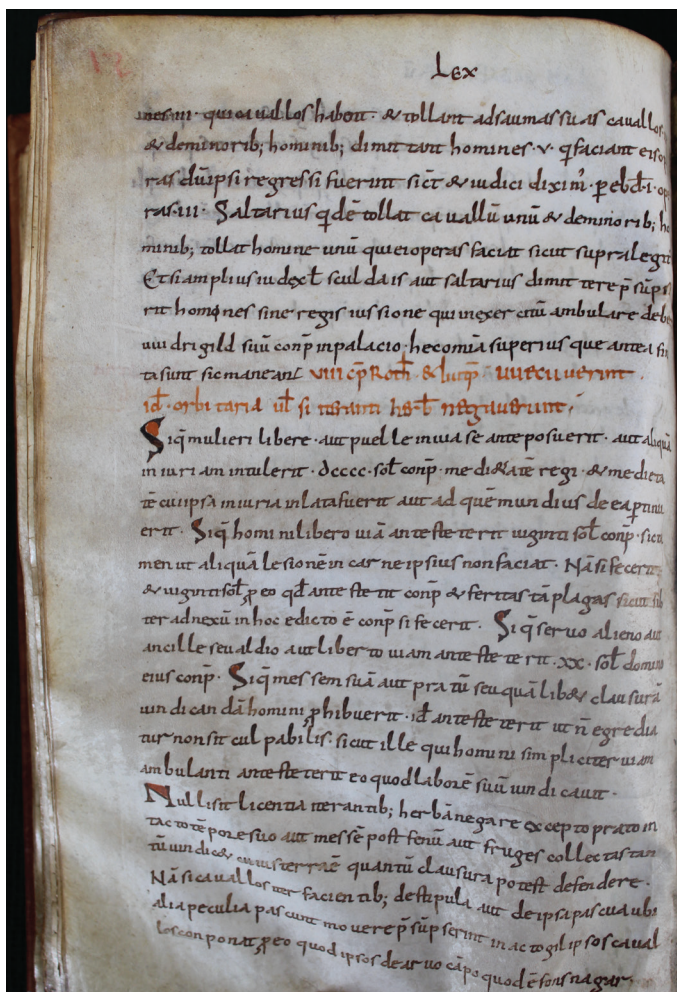 Lex
qui cauallos habent · & tollant ad saumas suas cauallos
& de minorib; hominib; dimittant homines · v · q̄ faciant eis op
ras dū ipsi regressi fuerint sic̄t & iudici dixim̄ · p ebd̄ · i · ope
ras · iii · Saltarius q̄dē tollat cauallū unū & de minorib; ho
minib; tollat homine unū qui ei operas faciat sicut supra legit̄
Et si amplius iudex ł sculdais aut saltarius dimittere p̄sūpse
rit homines sine regis iussione qui in exercitū ambulare debe
uuidrigild suū conp̄ in palacio · hec omia superius que antea fin
ita sunt sic maneant VIIII cp̄ Roth̄ · &
id̄ · orbitaria uł si iteranti negauerunt ;
Siq̄ mulieri libere · aut puelle in uia se anteposuerit · aut aliquā
iniuriam intulerit · dcccc · soł conp̄ · medi&atē regi · & medieta
tē cui ipsa iniuria inlata fuerit aut ad quē mundius de ea ptinu
erit · Siq̄ homini libero uiā antesteterit uiginti soł conp̄ · sic ta
men ut aliquā lesionē in carne ipsius non faciat · Nā si fecerit ;
& uiginti soł p eo qd̄ antestetit conp̄ & feritas tā plagas sicut sub
ter adnexū in hoc edicto ē conp̄ si fecerit · Siq̄ seruo alieno aut
ancille seu aldio aut liberto uiam antesteterit · xx · soł domino
eius conp̄ · Siq̄ messem suā aut pratū seu quālib& clausurā
uindicandā homini phibuerit · id̄ antesteterit ut n̄ egredia
tur non sit culpabilis · sicut ille qui homini simpliciter uiam
ambulanti antesteterit eo quod laborē suū uindicauit ·
Nulli sit licentia iterantib; herbā negare excepto prato in
tacto tēpore suo aut messē post fenū aut fruges collectas tan
tū uindic& cuius terra ē quantū clausura potest defendere ·
Nā si cauallos iter facientib; de stipula aut de ipsa pascua ubi
alia peculia pascunt mouere p̄sūpserint in actogil ipsos caual
los conponat p eo quod ipsos de aruo cāpo quod ē